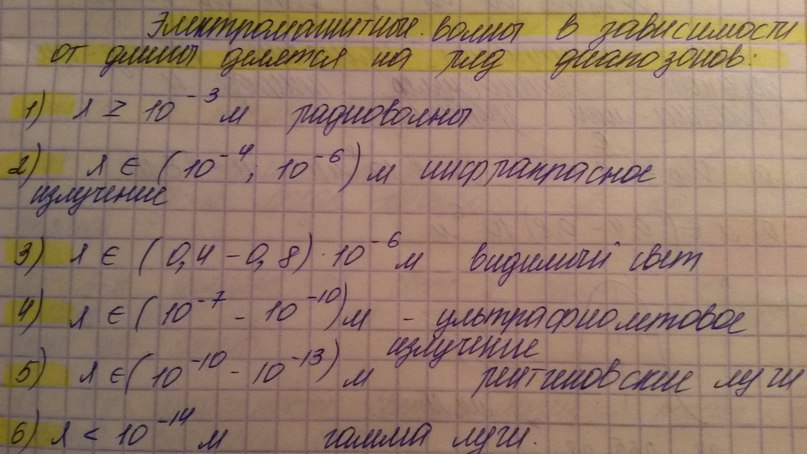 Электромагнитные волны в зависимости
от длины делятся на ряд диапозонов:
1) λ ≥ 10⁻³ м радиоволны
2) λ ∈ (10⁻⁴; 10⁻⁶) м инфракрасное
излучение
3) λ ∈ (0,4 – 0,8) · 10⁻⁶ м видимый свет
4) λ ∈ (10⁻⁷ – 10⁻¹⁰) м – ультрафиолетовое
излучение
5) λ ∈ (10⁻¹⁰ – 10⁻¹³) м рентгеновские лучи
6) λ < 10⁻¹⁴ м гамма лучи.